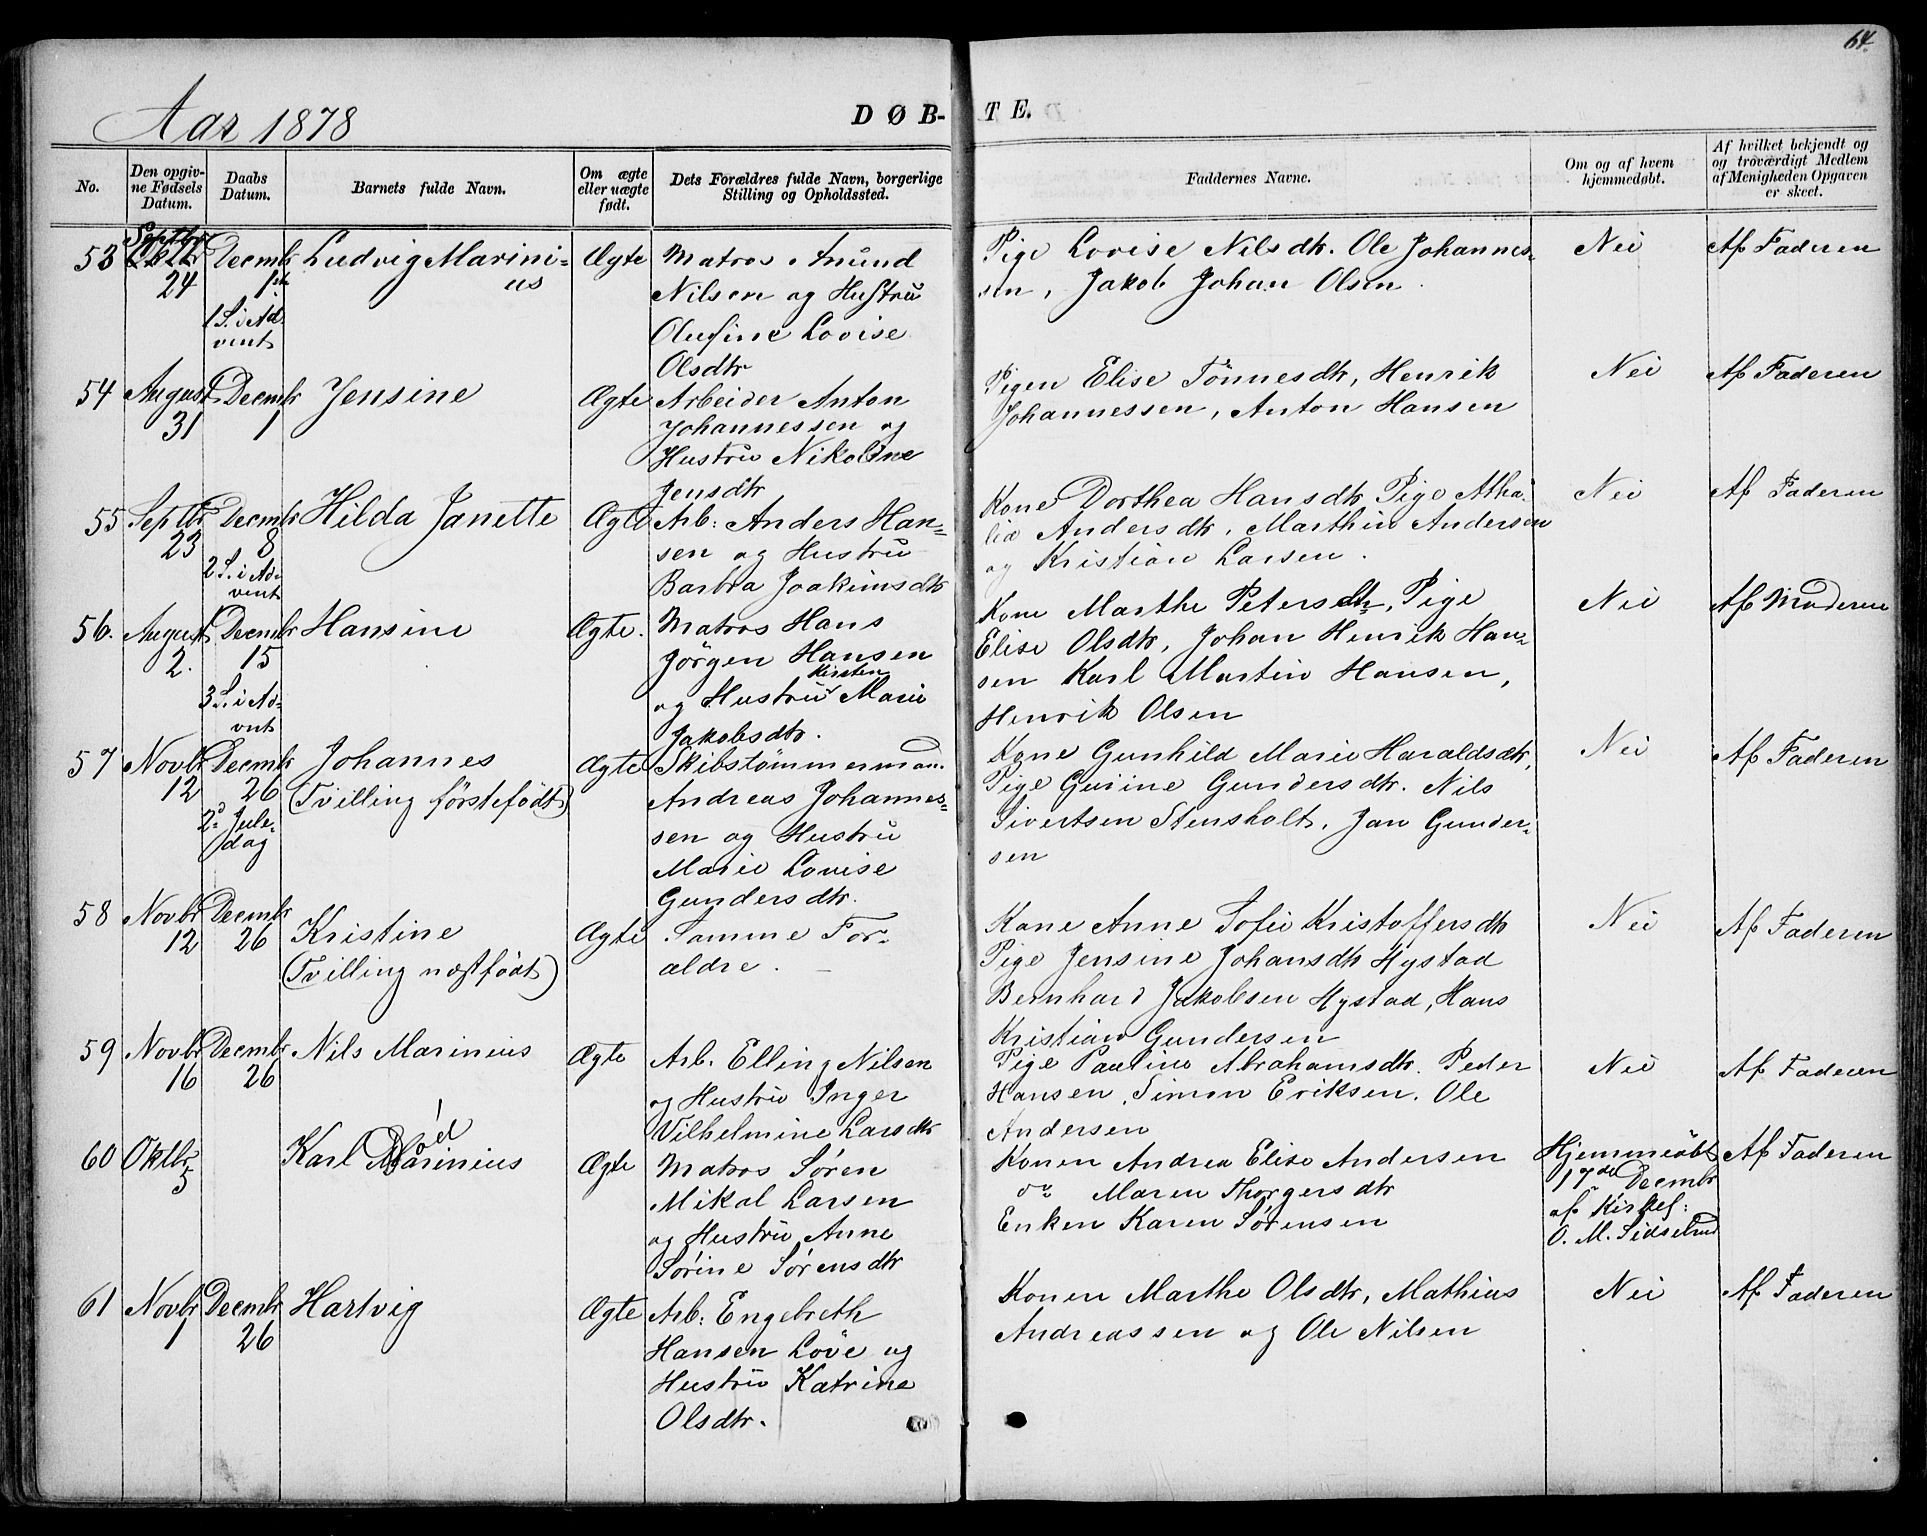 64.
Aar 1878
DØB-
TE.
No.
Den opgiv-
ne Fødsels
Datum.
Daabs
Datum.
Barnets fulde Navn.
Om ægte
eller uægte
født.
Dets Forældres fulde Navn, borgerlige
Stilling og Opholdssted.
Faddernes Navne.
Om og af hvem
hjemmedøbt.
Af hvilket bekjendt og
og troværdigt Medlem
af Menigheden Opgaven
er skeet.
53
Septbr
24
Decmbr
1ste
1 S. i Ad-
vent
Ludvig Marini-
us
Ægte
Matros Anund
Nilsen og Hustru
Olufine Lovise
Olsdtr
Pige Lovise Nilsdtr. Ole Johannes-
sen, Jakob Johan Olsen.
Nei
Af Faderen
54
August
31
Decmbr
1
Jensine
Ægte
Arbeider Anton
Johannessen og
Hustru Nikoline
Jensdtr
Pigen Elise Tönnesdtr, Henrik
Johannessen, Anton Hansen
Nei
Af Faderen
55
Septbr
23
Decmbr
8
2 S. i Ad-
vent
Hilda Janette
Ægte
Arb: Anders Han-
sen og Hustru
Barbra Joakimsdtr
Kone Dorthea Hansdtr Pige Atha-
lia Andersdtr, Marthin Andersen
og Kristian Larsen.
Nei
Af Faderen
56.
August
2.
Decmbr
15
3 S. i Ad-
vent
Hansine
Ægte.
Matros Hans
Jörgen Hansen
Kirsten
og Hustru Marie
Jakobsdtr.
Kone Marthe Petersdtr, Pige
Elise Olsdtr, Johan Henrik Han-
sen Karl Martin Hansen,
Henrik Olsen
Nei
Af Moderen
57
Novbr
12
Decmbr
26
2d Jule-
dag
Johannes
(Tvilling förstefödt)
Ægte
Skibstömmermand.
Andreas Johannes-
sen og Hustru
Marie Lovise
Gundersdtr.
Kone Gunhild Marie Haraldsdtr,
Pige Gurine Gundersdtr. Nils
Sivertsen Stensholt, Jan Gunder-
sen
Nei
Af Faderen
58
Novbr
12
Decmbr
26
Kristine
(Tvilling næstfödt)
Ægte
Samme For-
ældre.
Kone Anne Sofie Kristoffersdtr
Pige Jensine Johansdtr Hystad
Bernhard Jakobsen Hystad, Hans
Kristian Gundersen
Nei
Af Faderen
59
Novbr
16
Decmbr
26
Nils Marinius
Ægte
Arb. Elling Nilsen
og Hustru Inger
Vilhelmine Larsdtr
Pige Pauline Abrahamsdtr. Peder
Hansen, Simon Eriksen. Ole
Andersen
Nei
Af Faderen
60
Oktbr
5
Död
Karl Marinius
Ægte
Matros Sören
Mikal Larsen
og Hustru Anne
Sörine Sörensdtr
Konen Andrea Elise Andersen
do Maren Thorgersdtr
Enken Karen Sörensen
Hjemmedöbt
17de Decmbr
af Kirkes:
O. M. Sidselrud
Af Faderen
61
Novbr
1
Decmbr
26
Hartvig
Ægte
Arb: Engebreth
Hansen Löve og
Hustru Katrine
Olsdtr.
Konen Marthe Olsdtr, Mathius
Andreassen og Ole Nilsen
Nei
Af Faderen